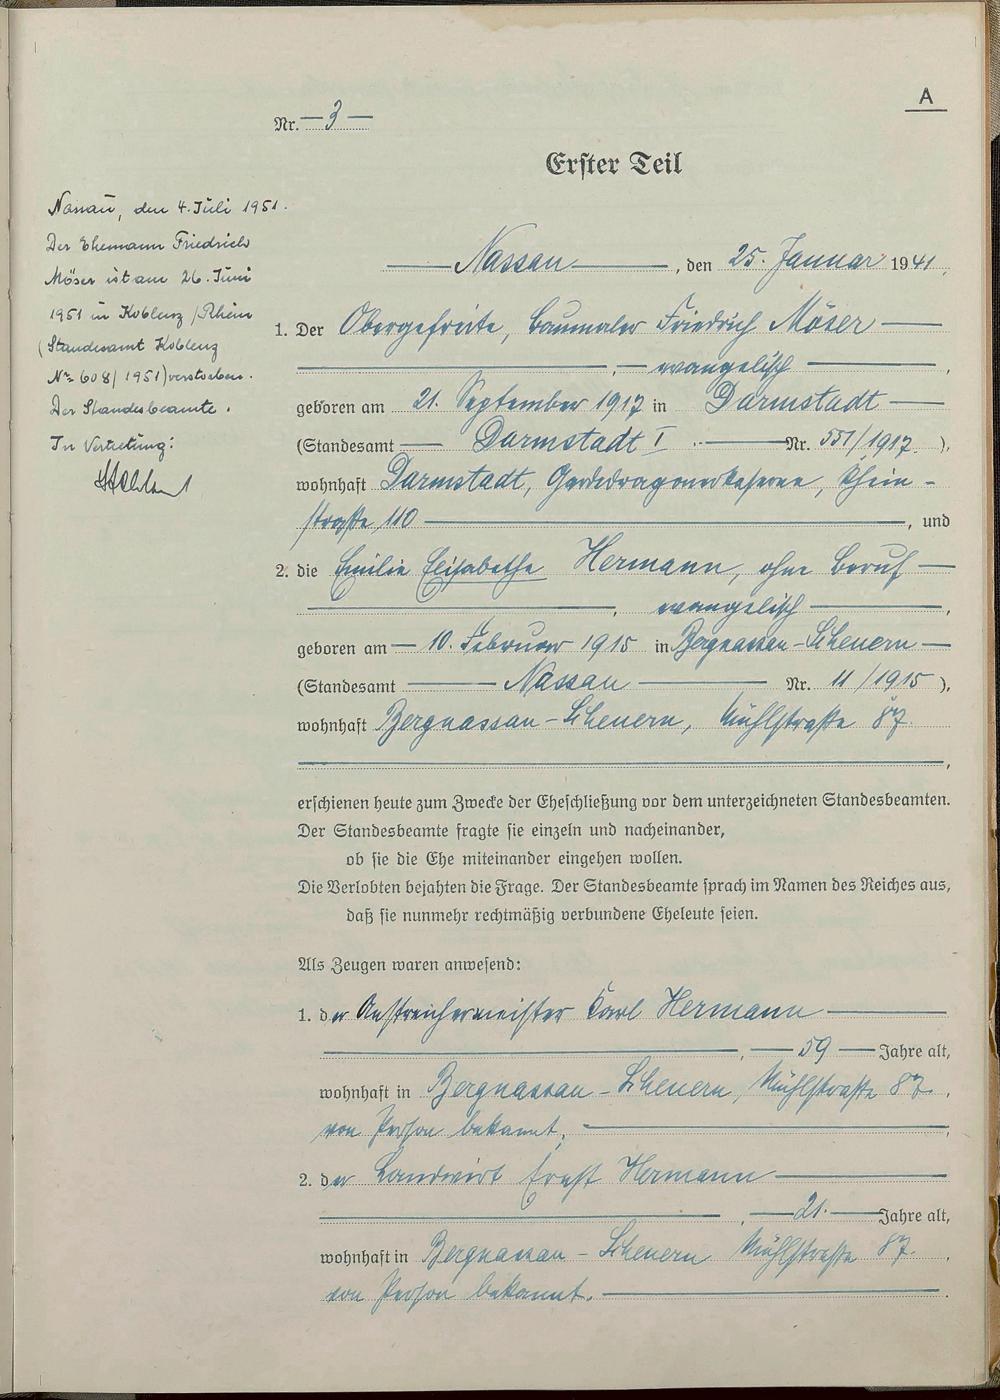 A
Nr. 3
Erster Teil
Nassau, den 4. Juli 1951.
Der Ehemann Friedrich
Möser ist am 26. Juni
1951 in Koblenz/Rhein
(Standesamt Koblenz
Nr 608/1951) verstorben.
Der Standesbeamte.
In Vertretung:
Nassau, den 25. Januar 1941.
1. Der Obergefreite, Baumaler Friedrich Möser
, evangelisch,
geboren am 21. September 1917 in Darmstadt
(Standesamt Darmstadt I Nr. 551/1917.),
wohnhaft Darmstadt, Gardedragonerkaserne, Rhein-
straße 110, und
2. die Emilie Elisabethe Hermann, ohne Beruf
, evangelisch,
geboren am 10. Februar 1915 in Bergnassau-Scheuern
(Standesamt Nassau Nr. 11/1915),
wohnhaft Bergnassau-Scheuern, Mühlstraße 87.
,
erschienen heute zum Zwecke der Eheschließung vor dem unterzeichneten Standesbeamten.
Der Standesbeamte fragte sie einzeln und nacheinander,
ob sie die Ehe miteinander eingehen wollen.
Die Verlobten bejahten die Frage. Der Standesbeamte sprach im Namen des Reiches aus,
daß sie nunmehr rechtmäßig verbundene Eheleute seien.
Als Zeugen waren anwesend:
1. der Anstreichermeister Karl Hermann
, 59 Jahre alt,
wohnhaft in Bergnassau-Scheuern, Mühlstraße 87.,
von Person bekannt,
2. der Landwirt Ernst Hermann
, 21. Jahre alt,
wohnhaft in Bergnassau-Scheuern Mühlstraße 87.,
von Person bekannt.